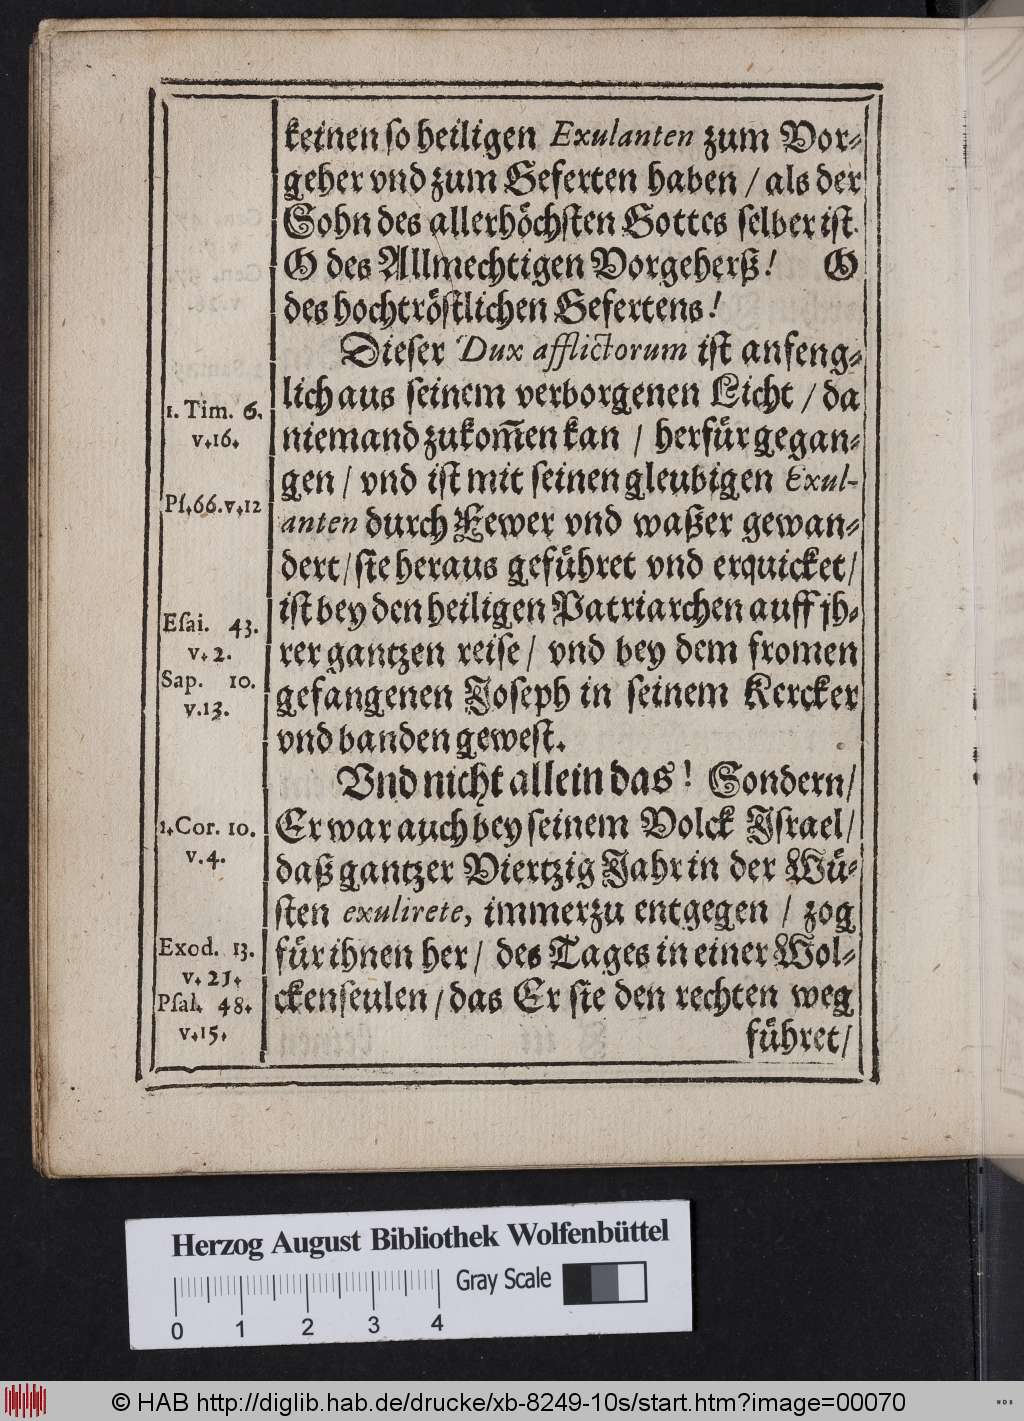 keinen so heiligen Exulanten zum Vor⸗
geher vnd zum Geferten haben / als der
Sohn des allerhöchsten Gottes selber ist.
O des Allmechtigen Vorgeherß! O
des hochtröstlichen Gefertens!
Dieser Dux afflictorum ist anfeng⸗
lich aus seinem verborgenen Licht / da
1. Tim. 6.
v.16.
niemand zukom̃en kan / herfür gegan⸗
gen / vnd ist mit seinen gleubigen Exul-
Pſ.66.v.12
anten durch Fewer vnd waßer gewan⸗
dert/ sie heraus geführet vnd erquicket/
ist bey den heiligen Patriarchen auff jh⸗
Eſai. 43.
v.2.
rer gantzen reise/ vnd bey dem fromen
Sap. 10.
v.13.
gefangenen Joseph in seinem Kercker
vnd banden gewest.
Vnd nicht allein das! Sondern/
1.Cor. 10.
v.4.
Er war auch bey seinem Volck Israel/
daß gantzer Viertzig Jahr in der Wü⸗
sten exulirete, immerzu entgegen / zog
Exod. 13.
v.21.
für ihnen her/ des Tages in einer Wol⸗
Pſal. 48.
v.15.
ckenseulen/ das Er sie den rechten weg
führet/
Herzog August Bibliothek Wolfenbüttel
Gray Scale
0 1 2 3 4
© HAB http://diglib.hab.de/drucke/xb-8249-10s/start.htm?image=00070